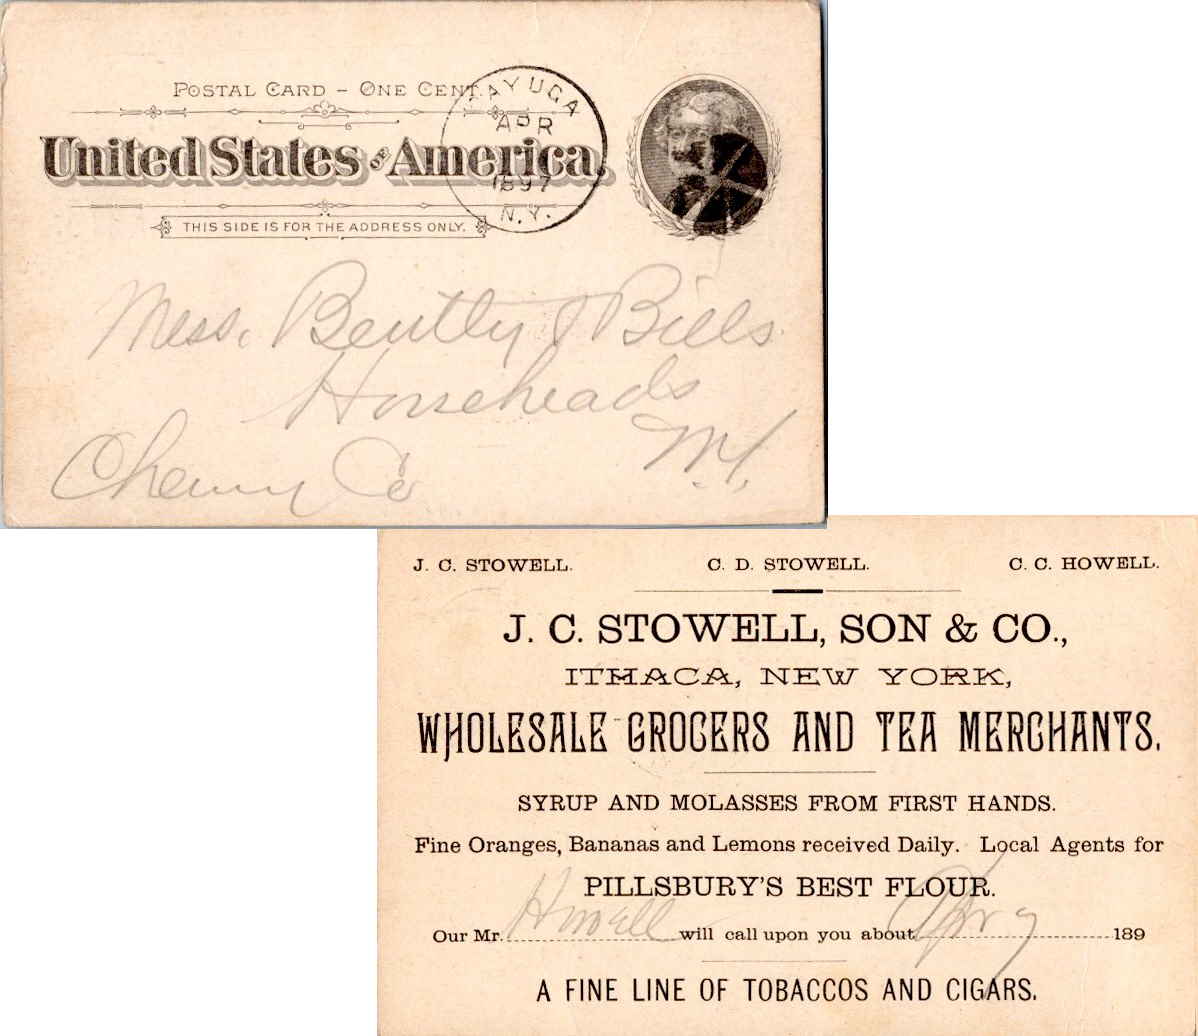 POSTAL CARD – ONE CENT.
United States OF America.
THIS SIDE IS FOR THE ADDRESS ONLY.
CAYUGA
APR
1897
N.Y.
Mess. Bently & Bills
Horseheads
Chemung Co N.Y.
J. C. STOWELL. C. D. STOWELL. C. C. HOWELL.
J. C. STOWELL, SON & CO.,
ITHACA, NEW YORK,
WHOLESALE GROCERS AND TEA MERCHANTS.
SYRUP AND MOLASSES FROM FIRST HANDS.
Fine Oranges, Bananas and Lemons received Daily. Local Agents for
PILLSBURY'S BEST FLOUR.
Our Mr. Howell will call upon you about Apr 9 189
A FINE LINE OF TOBACCOS AND CIGARS.